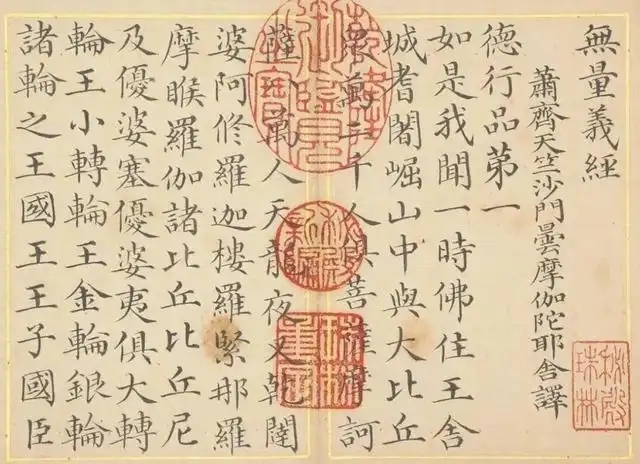 無量義經
蕭齊天竺沙門曇摩伽陀耶舍譯
德行品第一
如是我聞一時佛住王舍
城耆闍崛山中與大比丘
眾萬二千人俱菩薩摩訶
薩八萬人天龍夜叉乾闥
婆阿修羅迦樓羅緊那羅
摩睺羅伽諸比丘比丘尼
及優婆塞優婆夷俱大轉
輪王小轉輪王金輪銀輪
諸輪之王國王王子國臣
秘殿
珠林